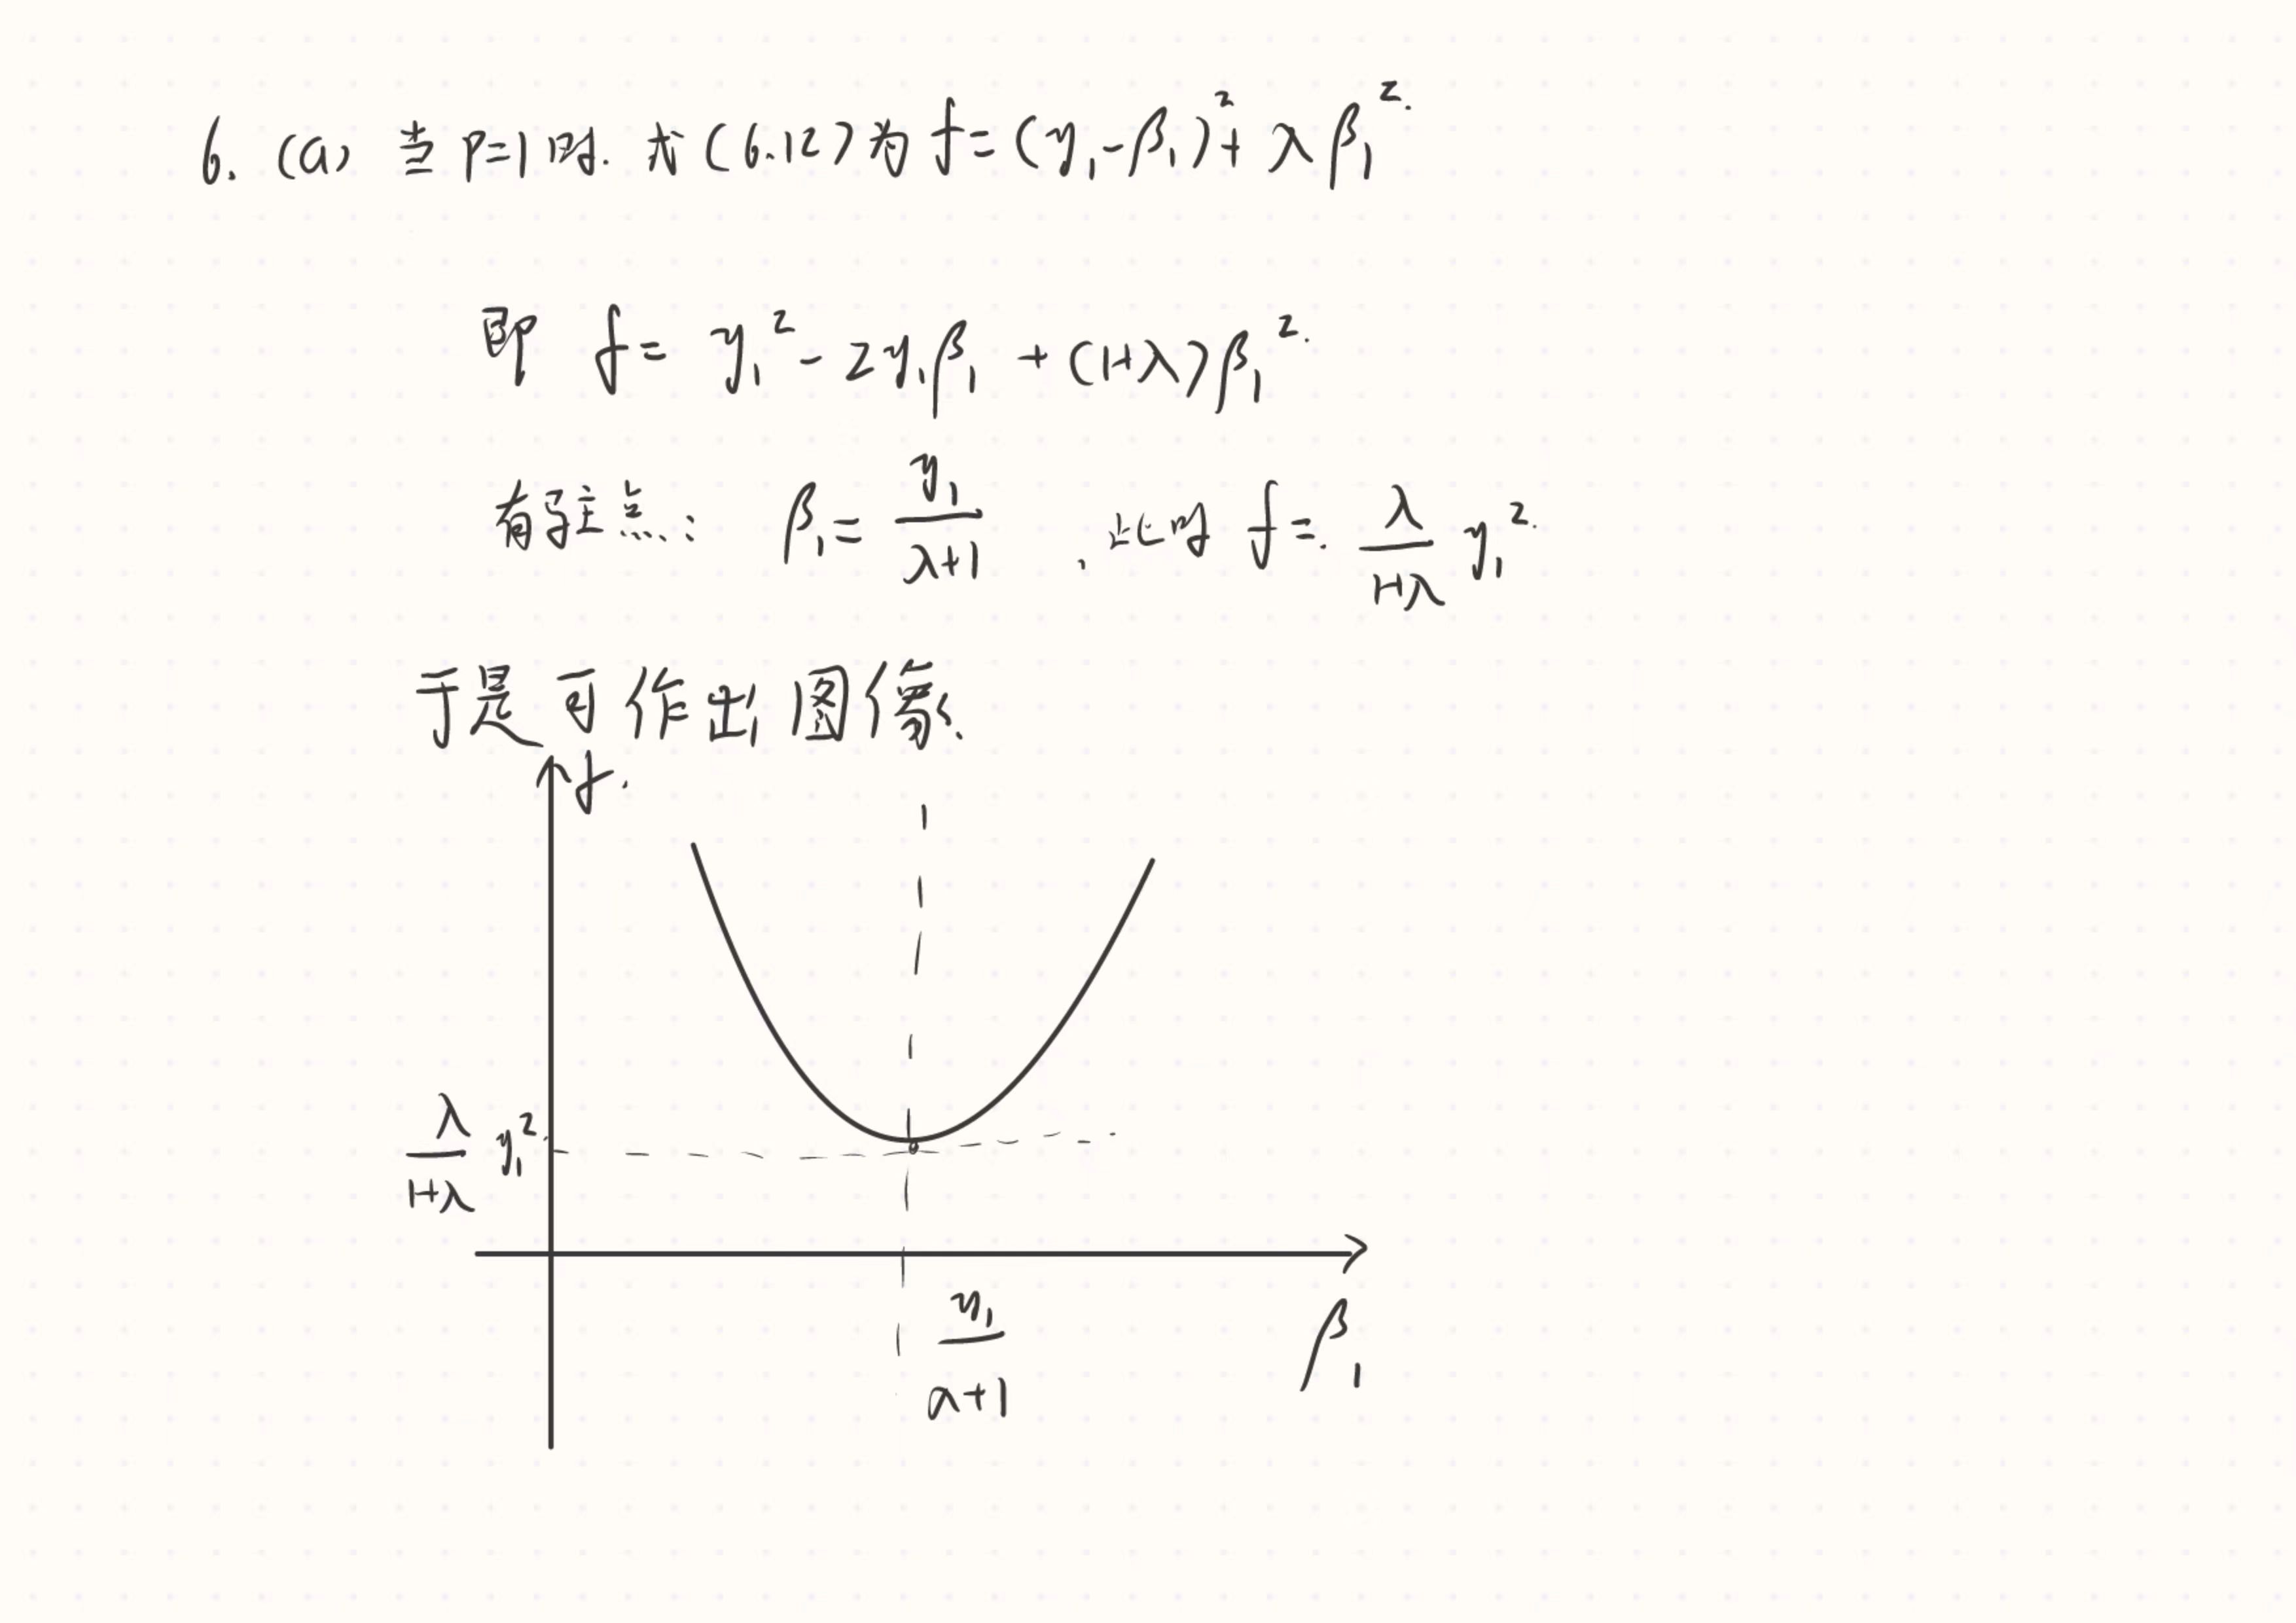 6. (a) 当 p=1 时. 式(6.12)为 f=(y₁-β₁)²+λβ₁².
即 f= y₁²-2y₁β₁+(1+λ)β₁².
有驻点: β₁= y₁/(λ+1) , 此时 f= λ/(1+λ) y₁².
于是可作出图像.
f.
λ/(1+λ) y₁².
y₁/(a+1)
β₁